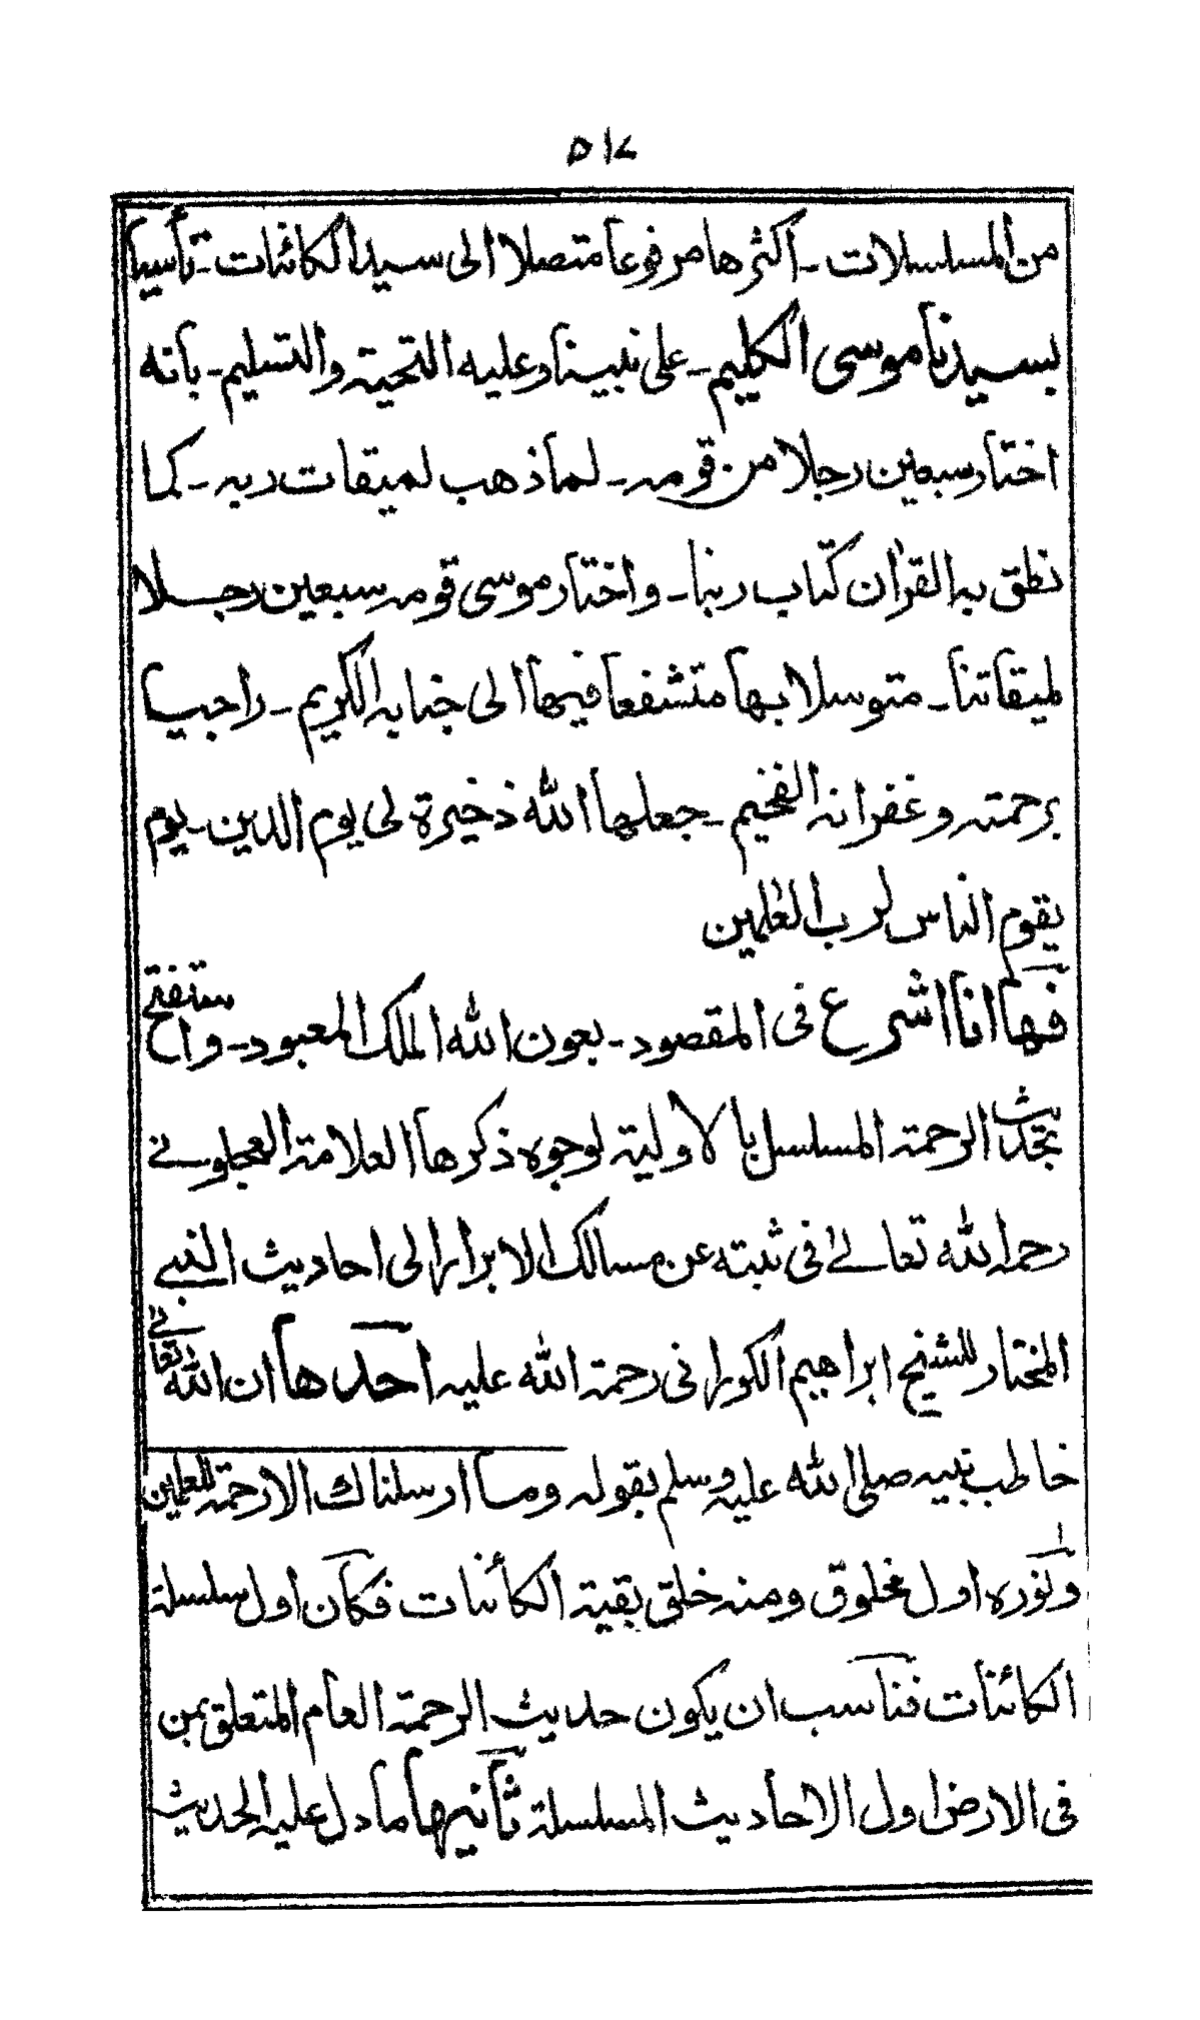 ٥١٧
من المسلسلات ـ اكثرها مرفوعا متصلا الى سيد الكائنات ـ تأسيا
بسيدنا موسى الكليم ـ على نبينا وعليه التحية والتسليم ـ بانه
اختار سبعين رجلا من قومه ـ لما ذهب لميقات ربه ـ كما
نطق به القرآن كتاب ربنا ـ واختار موسى قومه سبعين رجلا
لميقاتنا ـ متوسلا بها متشفعا فيها الى جنابه الكريم ـ راجيا
برحمته وغفرانه الفخيم ـ جعلها الله ذخيرة لى يوم الدين ـ يوم
يقوم الناس لرب العٰلمين
فها انا اشرع فى المقصود ـ بعون الله الملك المعبود ـ واستفتح
بحديث الرحمة المسلسل بالاولية لوجوه ذكرها العلامة العجلونے
رحمه الله تعالےٰ فى ثبته عن مسالك الابرار الى احاديث النبے
المختار للشيخ ابراهيم الكورانى رحمة الله عليه احدها ان الله تعالےٰ
خاطب نبيه صلى الله عليه وسلم بقوله وما ارسلناك الا رحمة للعٰلمين
ونوره اول مخلوق ومنه خلق بقية الكائنات فكان اول سلسلة
الكائنات فناسب ان يكون حديث الرحمة العام المتعلق بمن
فى الارض اول الاحاديث المسلسلة ثانيها ما دل عليه الحديث